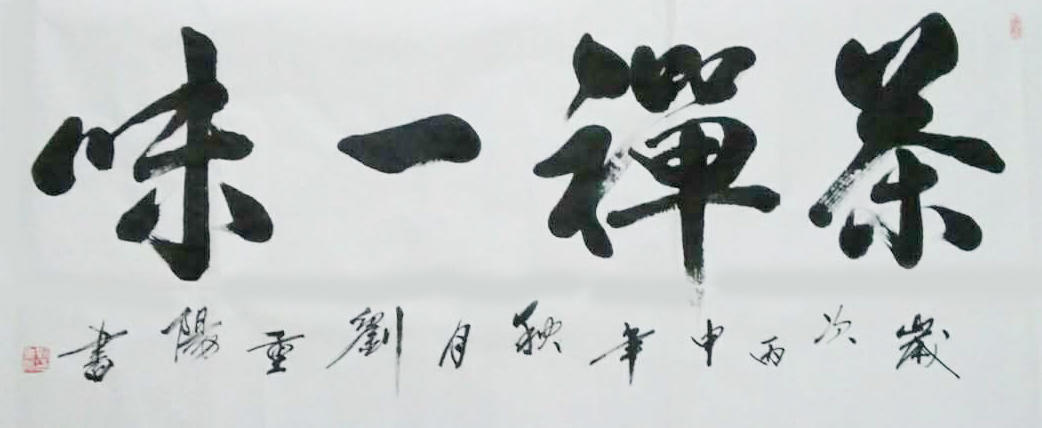 茶禪一味
歲次丙申年秋月劉重陽書